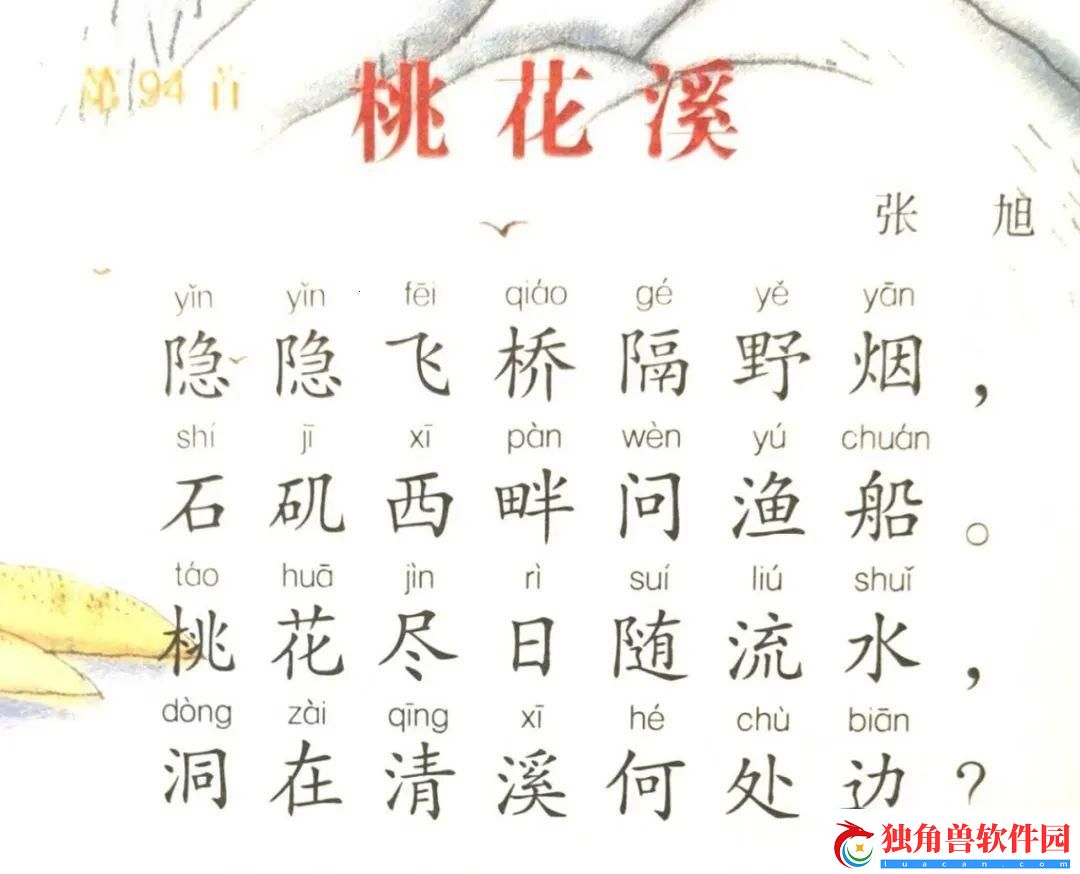 第94首
桃花溪
张 旭
yǐn yǐn fēi qiáo gé yě yān
隐隐飞桥隔野烟，
shí jī xī pàn wèn yú chuán
石矶西畔问渔船。
táo huā jìn rì suí liú shuǐ
桃花尽日随流水，
dòng zài qīng xī hé chù biān
洞在清溪何处边？
独角兽软件园
luacan.com